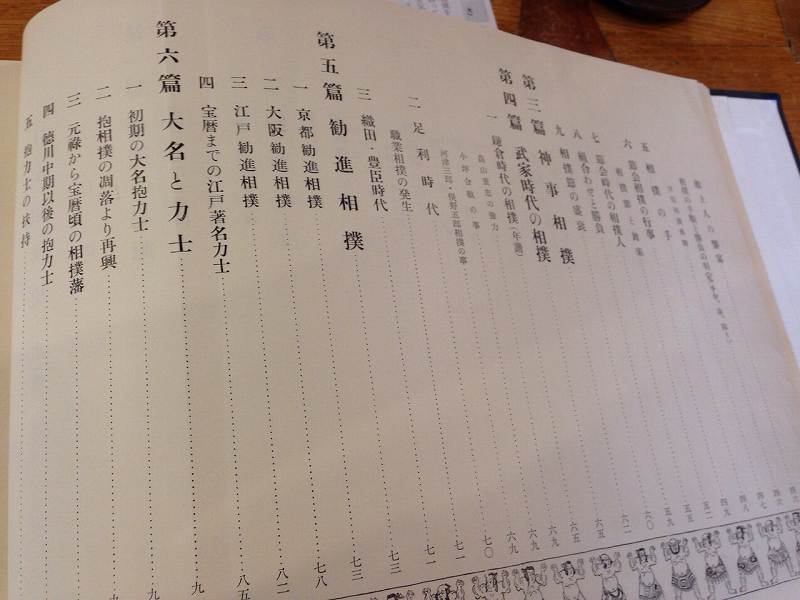 五 相撲の手 五九
六 節会相撲の行事 六〇
節会時代の相撲人 六二
七 節会相撲と舞楽
八 相合わせと勝負 六五
九 相撲節の盛衰 六五
第三篇 神事相撲 六九
第四篇 武家時代の相撲（年譜） 六九
一 鎌倉時代の相撲 六九
畠山重忠の強力 七〇
小坪合戦の事
河津三郎・俣野五郎相撲の事 七一
二 足利時代 七一
職業相撲の発生 七三
三 織田・豊臣時代 七三
第五篇 勧進相撲
一 京都勧進相撲 七八
二 大阪勧進相撲 八二
三 江戸勧進相撲 八五
四 宝暦までの江戸著名力士 九
第六篇 大名と力士
一 初期の大名抱力士 九
二 抱相撲の凋落より再興 九
三 元禄から宝暦頃の相撲藩
四 徳川中期以後の抱力士
五 抱力士の扶持